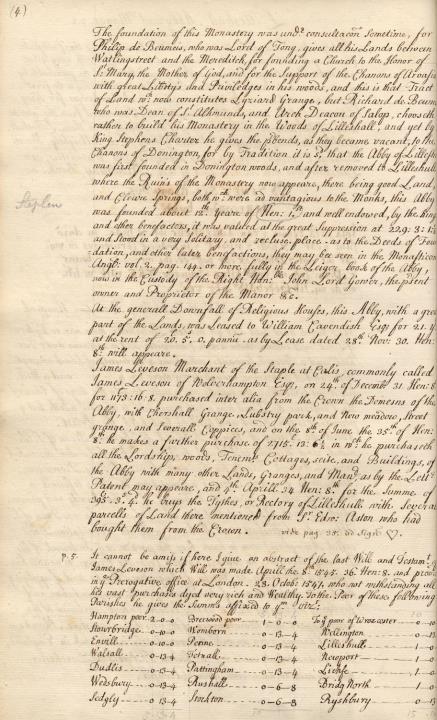 (4.)
The foundation of this Monastery was und.r consultacon Sometime, for
Philip de Beumeis, who was Lord of Tong, gives all his Lands between
Watlingstreet and the Meredith, for founding a Church to the Honor of
S.t Mary, the Mother of God, and for the Support of the Chanons of Aroasia
with great Libertys and Priviledges in his woods, and this is that Tract
of Land w.ch now constitutes Lyziard Grange, but Richard de Beum
who was Dean of S.t Alkmunds, and Arch Deacon of Salop, chooseth
rather to build his Monastery in the Woods of Lilleshall, and yet by
King Stephens Charter he gives the p̃bends, as they became vacant, to the
Chanons of Donington, for by Tradition it is s.d that the Abby of Lillesh
was first founded in Donington woods, and after removed to Lilleshull
where the Ruins of the Monastery now appeare, there being good Land,
Stephen
and Cleare Springs, both w.ch were advantagious to the Monks, this Abby
was founded about 12. Yeare of Hen: 1.st and well endowed, by the King
and other benefactors, it was valued at the great Suppression at 229. 3: 1
and Stood in a very Solitary, and recluse place. as to the Deeds of Foun
dation, and other later benefactions, they may be seen in the Monasticon
Angl: vol. 2. pag. 144. or more fully in the Leiger book of the Abby,
now in the Custody of the Right Hon.ble John Lord Gower, the p̃sent
owner and Proprietor of the Manor &c.
At the generall Downfall of Religious Houses, this Abby, with a great
part of the Lands, was Leased to William Cavendish Esq; for 21. y
at the rent of 20. 5. 0. p annu. as by Lease dated 28.th Nov: 30. Hen:
8.th will appeare.
James Leveson Marchant of the Staple at Calis, commonly called
James Leveson of Wolverhampton Esq; on 24.th of Decemb.r 31 Hen: 8
for 1173: 16: 8. purchased inter alia from the Crown the Demesns of the
Abby, with Chershall Grange. Lubstry park, and New meadow, Street
grange, and Severall Coppices, and on the 8.th of June the 35.th of Hen:
8.th he makes a further purchase of 2715. 13: 6¼ in w.ch he purchaseth
all the Lordship, woods, Tenem.ts Cottages, scite, and Buildings, of
the Abby with many other Lands, Granges, and Man.rs as by the Lett.rs
Patent may appeare, and 4.th Aprill 34 Hen: 8. for the Summe of
398: 3: 4. he buys the Tythes, or Rectory of Lilleshull with Several
parcells of Land there mentioned from S.r Edw: Aston who had
bought them from the Crown.
vide pag. 35. ad Sign
p. 5.
It cannot be amiss if here I give an abstract of the last Will and Testam.t
James Leveson which Will was made Aprill the 8.th 1545. 36. Hen: 8. and prov
in y.e Prerogative office at London. 28. Octob: 1547. who not withstanding all
his vast purchases dyed very rich and Wealthy. To the Poor of these following
Parishes he gives the Summs affixed to y.m vitz:
Hampton poor. 2-0-0 Brewood poor 1-0-0 To y.e poor of Worcester 0-10
Stourbridge 0-10-0 Womborn 0-13-4 Wellington 0-13
Envill 0-10-0 Penne 0-13-4 Lilleshull 1-0
Walsall 0-13-4 Tetnall 0-13-4 Newport 1-0
Dudlis 0-13-4 Pattingham 0-13-4 Lichfe 1-0
Wedsbury 0-13-4 Rushall 0-6-8 Bridg North 1-0
Sedgly 0-13-4 Stockton 0-6-8 Ryshbury 0-13